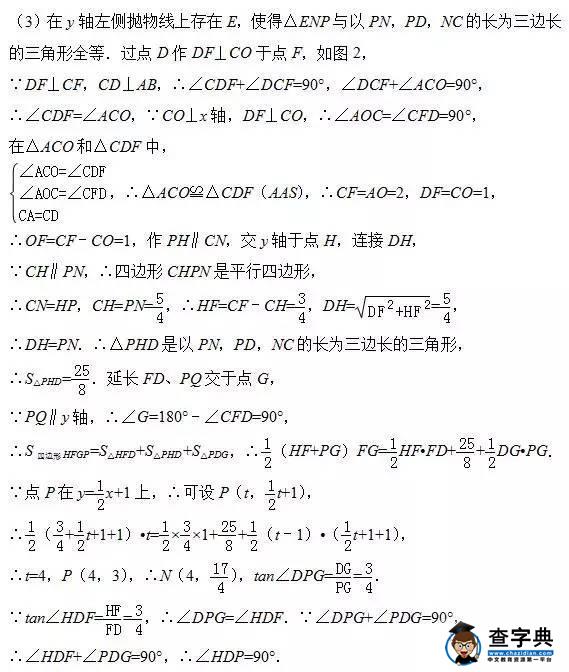 （3）在y轴左侧抛物线上存在E，使得△ENP与以PN，PD，NC的长为三边长
的三角形全等．过点D作DF⊥CO于点F，如图2，
∵DF⊥CF，CD⊥AB，∴∠CDF+∠DCF=90°，∠DCF+∠ACO=90°，
∴∠CDF=∠ACO，∵CO⊥x轴，DF⊥CO，∴∠AOC=∠CFD=90°，
在△ACO和△CDF中，
{∠ACO=∠CDF
∠AOC=∠CFD，∴△ACO≌△CDF（AAS），∴CF=AO=2，DF=CO=1，
CA=CD
∴OF=CF﹣CO=1，作PH∥CN，交y轴于点H，连接DH，
∵CH∥PN，∴四边形CHPN是平行四边形，
∴CN=HP，CH=PN=5/4，∴HF=CF﹣CH=3/4，DH=√(DF²+HF²)=5/4，
∴DH=PN．∴△PHD是以PN，PD，NC的长为三边长的三角形，
∴S△PHD=25/8．延长FD、PQ交于点G，
∵PQ∥y轴，∴∠G=180°﹣∠CFD=90°，
∴S四边形HFGP=S△HFD+S△PHD+S△PDG，∴1/2（HF+PG）FG=1/2HF•FD+25/8+1/2DG•PG．
∵点P在y=1/2x+1上，∴可设P（t，1/2t+1），
∴1/2（3/4+1/2t+1+1）•t=1/2×3/4×1+25/8+1/2（t﹣1）•（1/2t+1+1），
∴t=4，P（4，3），∴N（4，17/4），tan∠DPG=DG/PG=3/4．
∵tan∠HDF=HF/FD=3/4，∴∠DPG=∠HDF．∵∠DPG+∠PDG=90°，
∴∠HDF+∠PDG=90°，∴∠HDP=90°．
查字典
www.chazidian.com
中文教育资源第一平台